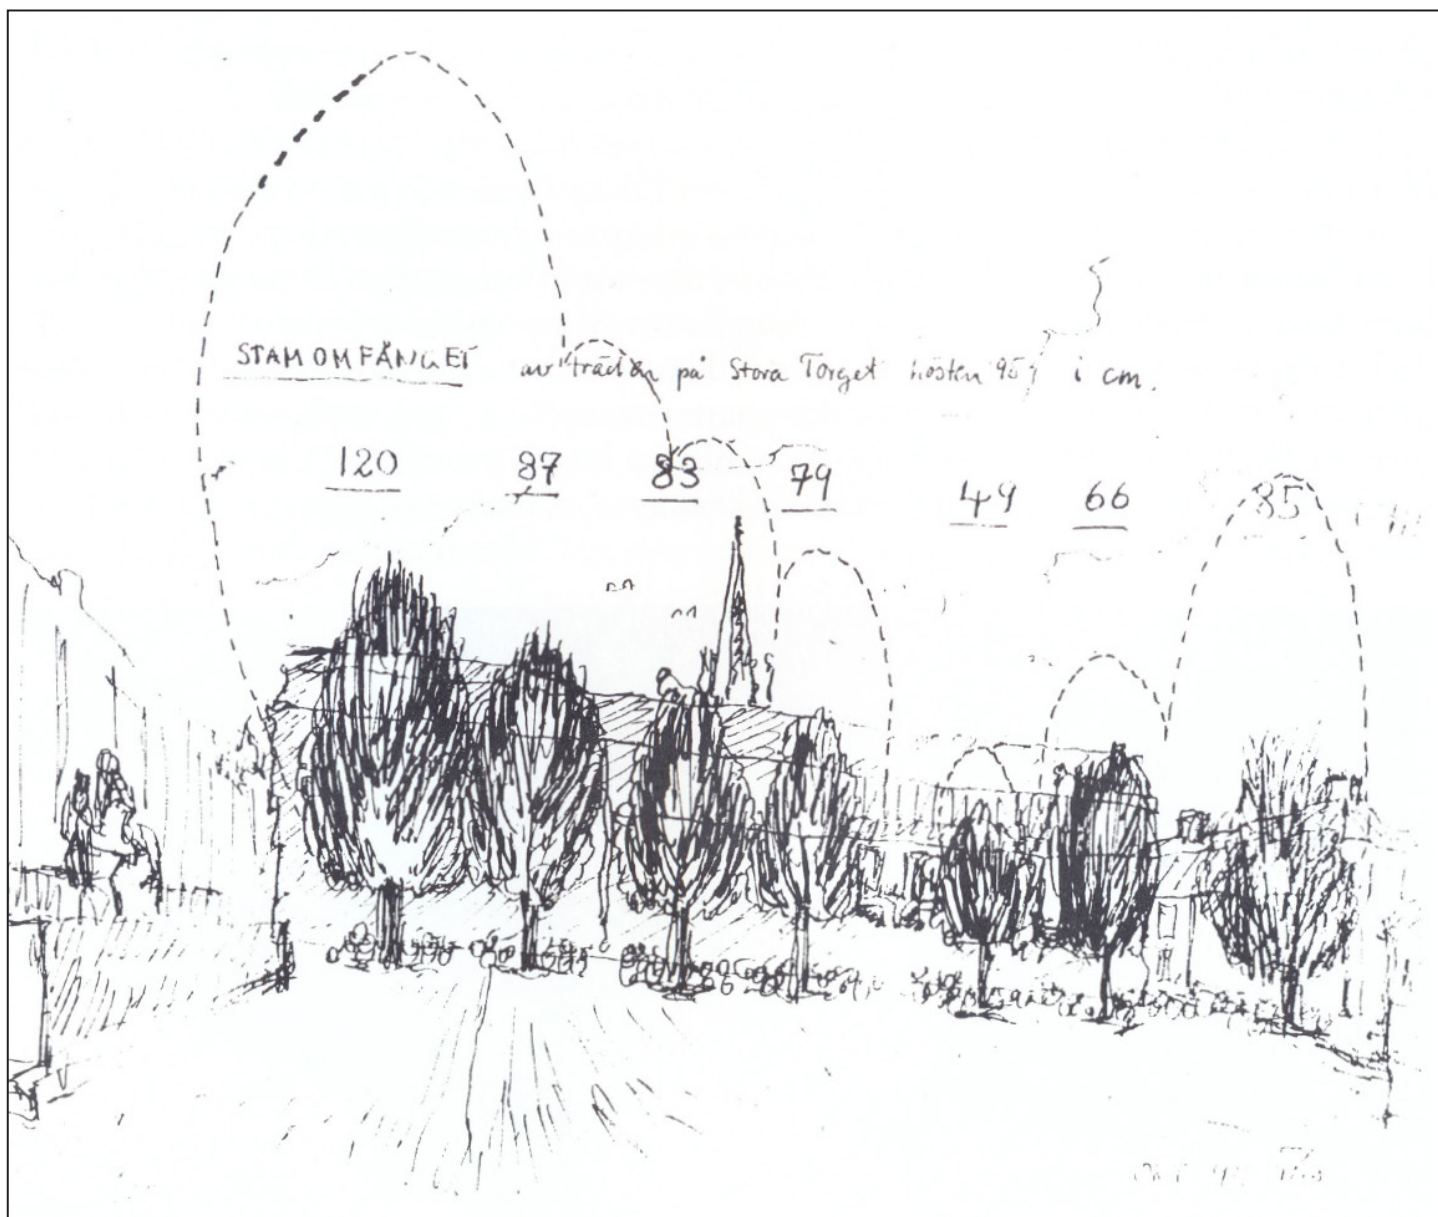 STAMOMFÅNGET av träden på Stora Torget hösten i cm.
120 87 83 79 49 66 85